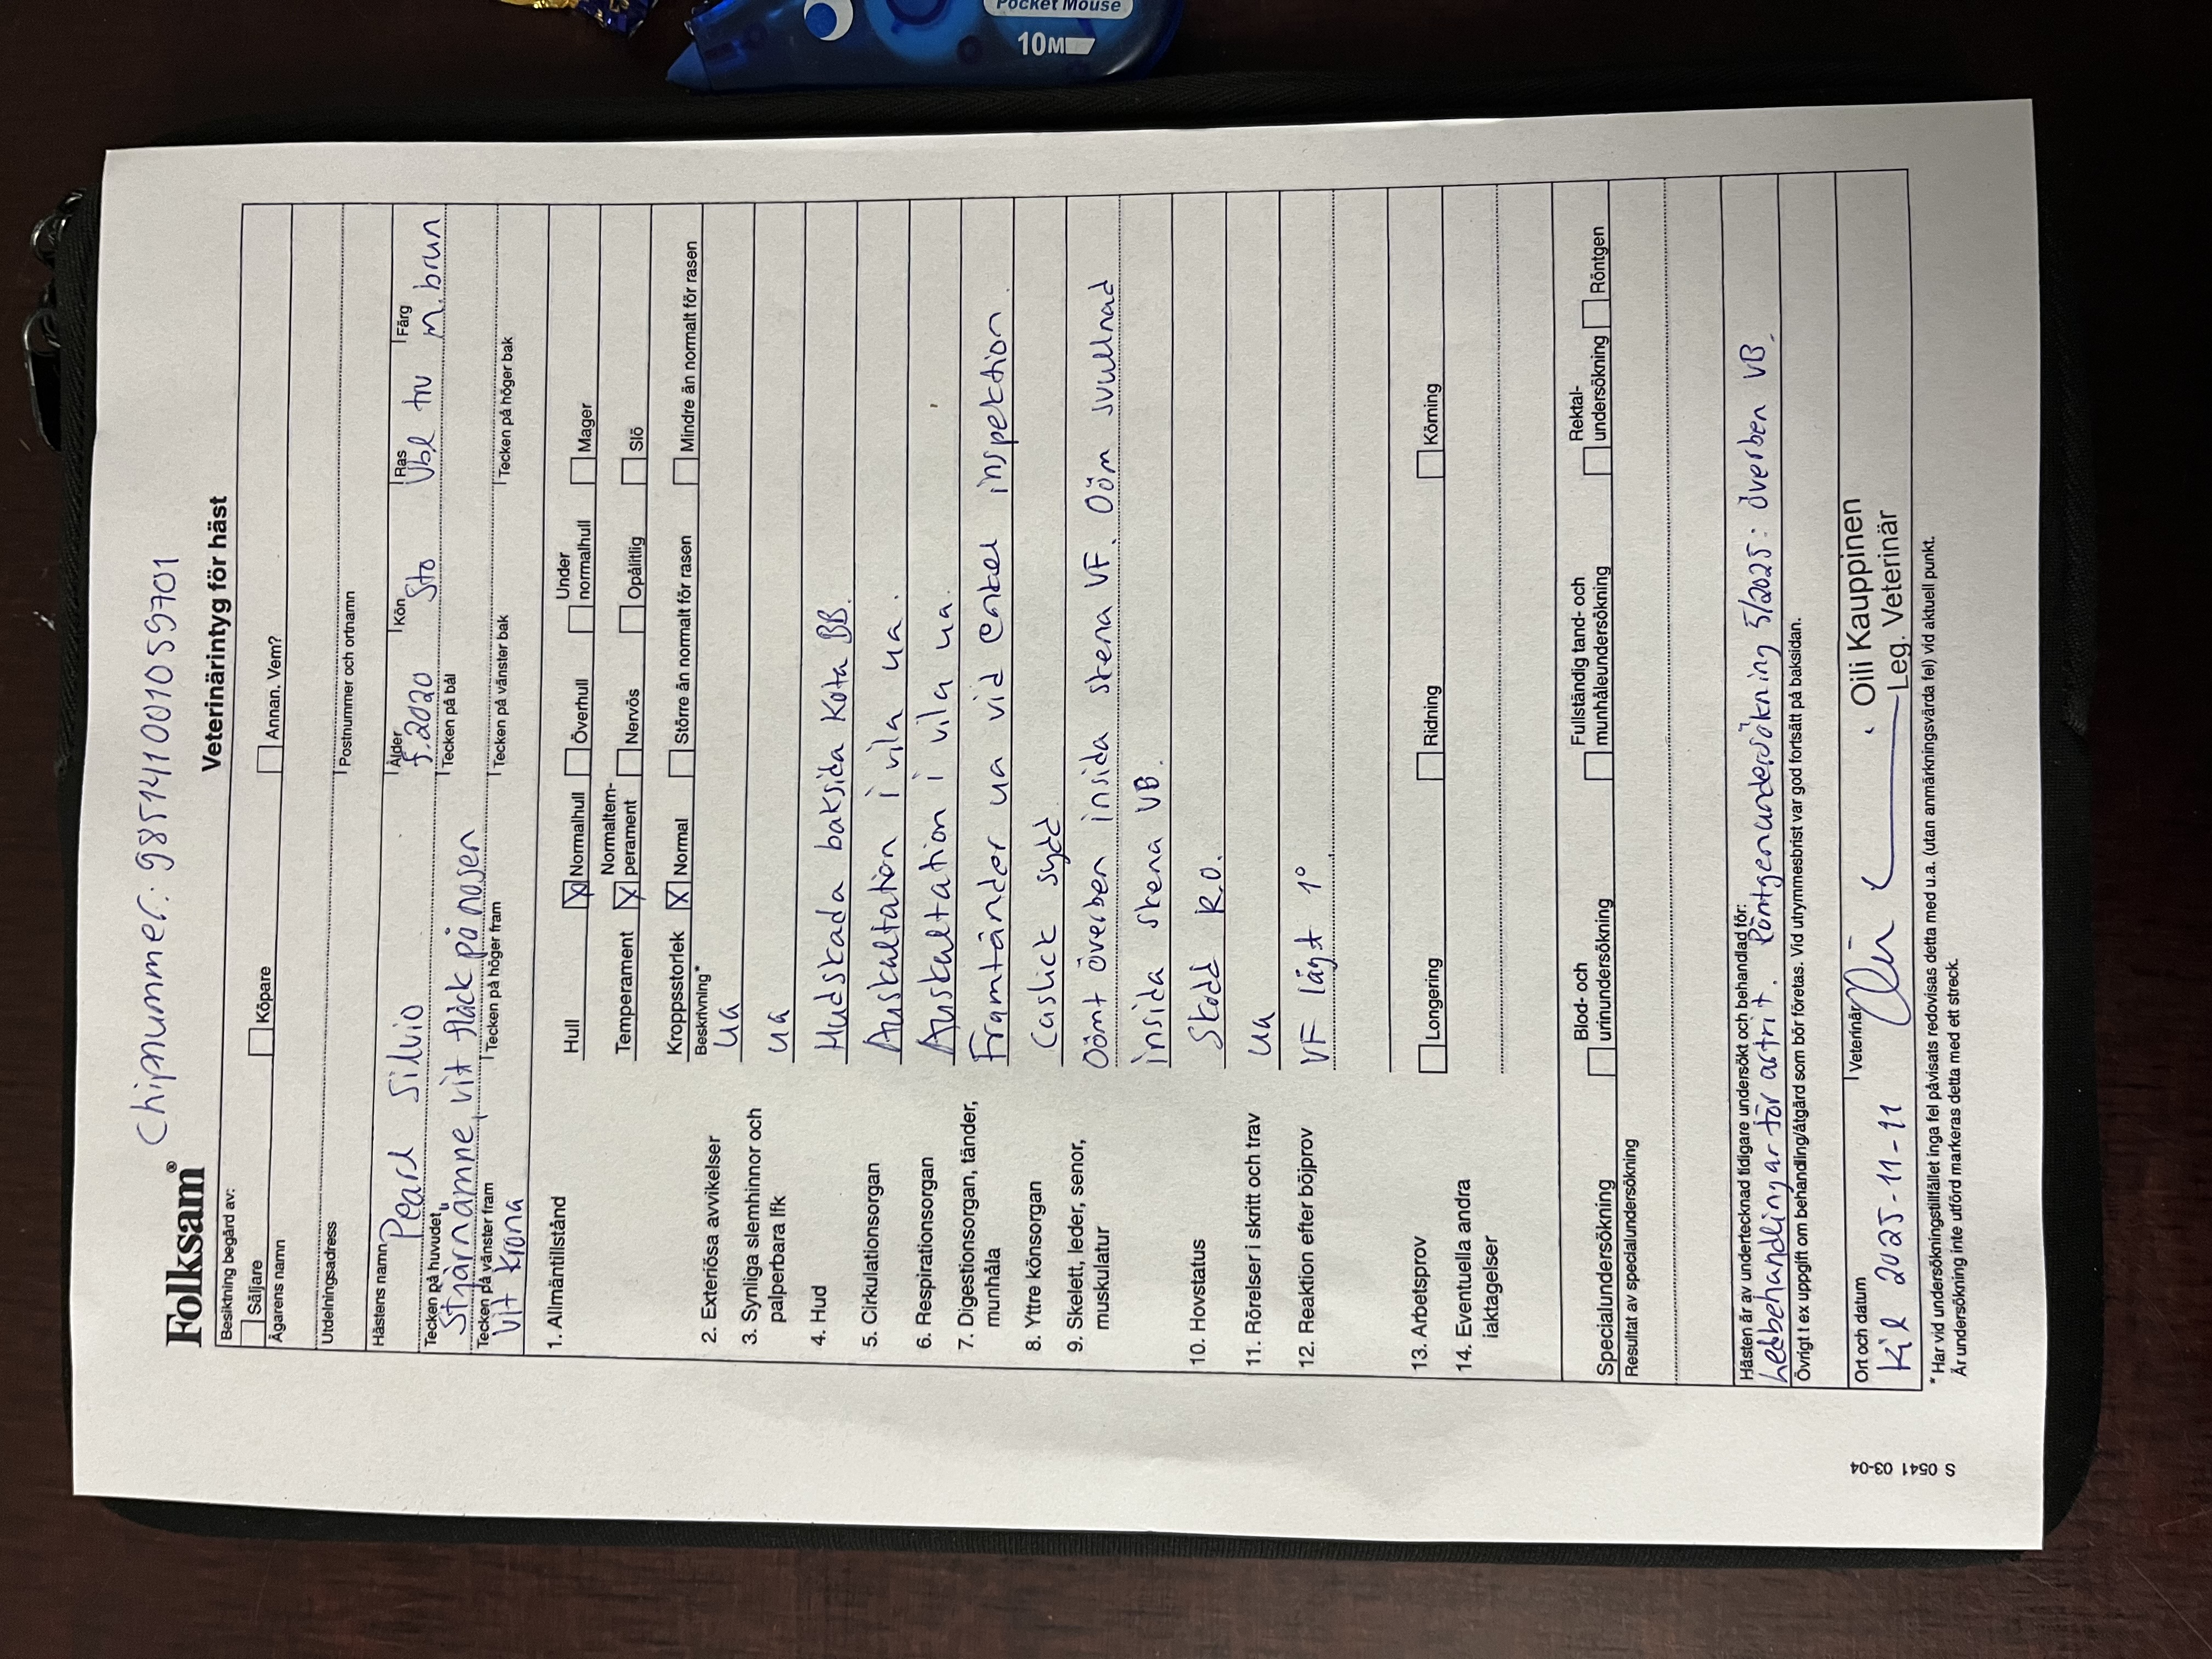 Pocket Mouse
10M
Chipnummer: 985141001059701
Folksam®
Veterinärintyg för häst
Besiktning begärd av:
Säljare Köpare Annan. Vem?
Ägarens namn
Utdelningsadress Postnummer och ortnamn
Hästens namn Ålder Kön Ras Färg
Pearl Silvio f.2020 Sto Vbl trv m.brun
Tecken på huvudet Tecken på bål
Stjärnämne, vit fläck på nosen
Tecken på vänster fram Tecken på höger fram Tecken på vänster bak Tecken på höger bak
Vit krona
1. Allmäntillstånd Hull X Normalhull Överhull Under normalhull Mager
Temperament X Normaltem-perament Nervös Opålitlig Slö
Kroppsstorlek X Normal Större än normalt för rasen Mindre än normalt för rasen
Beskrivning*
2. Exteriösa avvikelser ua
3. Synliga slemhinnor och
palperbara lfk ua
4. Hud Hudskada baksida Kota BB.
5. Cirkulationsorgan Auskultation i vila ua.
6. Respirationsorgan Auskultation i vila ua.
7. Digestionsorgan, tänder,
munhåla Framtänder ua vid enkel inspektion
8. Yttre könsorgan Caslick sydd
9. Skelett, leder, senor, Oömt överben insida skena VF. Oöm svullnad
muskulatur insida skena VB.
10. Hovstatus Skodd R.O.
11. Rörelser i skritt och trav ua
12. Reaktion efter böjprov VF lägt 1°
13. Arbetsprov Longering Ridning Körning
14. Eventuella andra
iakttagelser
Specialundersökning Blod- och urinundersökning Fullständig tand- och munhåleundersökning Rektal-undersökning Röntgen
Resultat av specialundersökning
Hästen är av undertecknad tidigare undersökt och behandlad för:
Ledbehandlingar för artrit. Röntgenundersökning 5/2025: överben VB
Övrigt t ex uppgift om behandling/åtgärd som bör företas. Vid utrymmesbrist var god fortsätt på baksidan.
Ort och datum Veterinär
Kil 2025-11-11 Olli Kauppinen
Leg. Veterinär
* Har vid undersökningstillfället inga fel påvisats redovisas detta med u.a. (utan anmärkningsvärda fel) vid aktuell punkt.
Är undersökning inte utförd markeras detta med ett streck.
S 0541 03-04